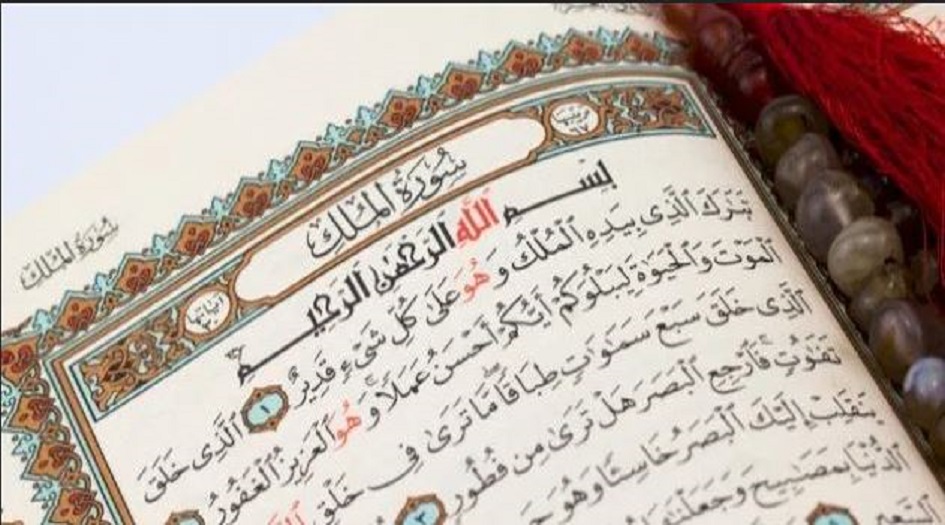 سُورَةُ المُلْكِ
سُورَةُ المُلْكِ
ترتيبها ٦٧
آياتها
بِسْمِ اللَّهِ الرَّحْمَٰنِ الرَّحِيمِ
تَبَٰرَكَ ٱلَّذِى بِيَدِهِ ٱلْمُلْكُ وَهُوَ عَلَىٰ كُلِّ شَىْءٍ قَدِيرٌ ١ ٱلَّذِى خَلَقَ
ٱلْمَوْتَ وَٱلْحَيَوٰةَ لِيَبْلُوَكُمْ أَيُّكُمْ أَحْسَنُ عَمَلًا وَهُوَ ٱلْعَزِيزُ ٱلْغَفُورُ
ٱلَّذِى خَلَقَ سَبْعَ سَمَٰوَٰتٍ طِبَاقًا مَّا تَرَىٰ فِى خَلْقِ
تَفَٰوُتٍ فَٱرْجِعِ ٱلْبَصَرَ هَلْ تَرَىٰ مِن فُطُورٍ ٣
يَنقَلِبْ إِلَيْكَ ٱلْبَصَرُ خَاسِئًا وَهُوَ
ٱلدُّنْيَا بِمَصَٰبِيحَ وَجَعَلْنَٰهَا
ٱلسَّعِيرِ